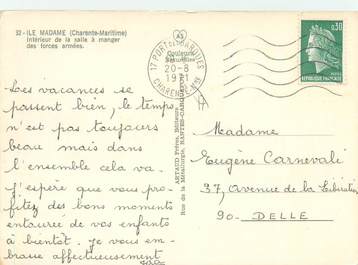 32 - ILE MADAME (Charente-Maritime)
Intérieur de la salle à manger
des forces armées.
17 PORT DES BARQUES
20-8
1971
CHARENTE MME
Couleurs
Naturelles
0,30
REPUBLIQUE FRANÇAISE
POSTES
ARTAUD Frères, Éditeurs
Rue de la Métallurgie, NANTES-CARQUEFOU
vacances se
passent bien, le temps
n'est pas toujours
beau mais dans
l'ensemble cela va.
J'espère que vous pro-
fitez des bons moments
entourée de vos enfants
à bientôt. Je vous em-
brasse affectueusement
Madame
Eugène Carnevali
37, Avenue de la Libération
90- DELLE